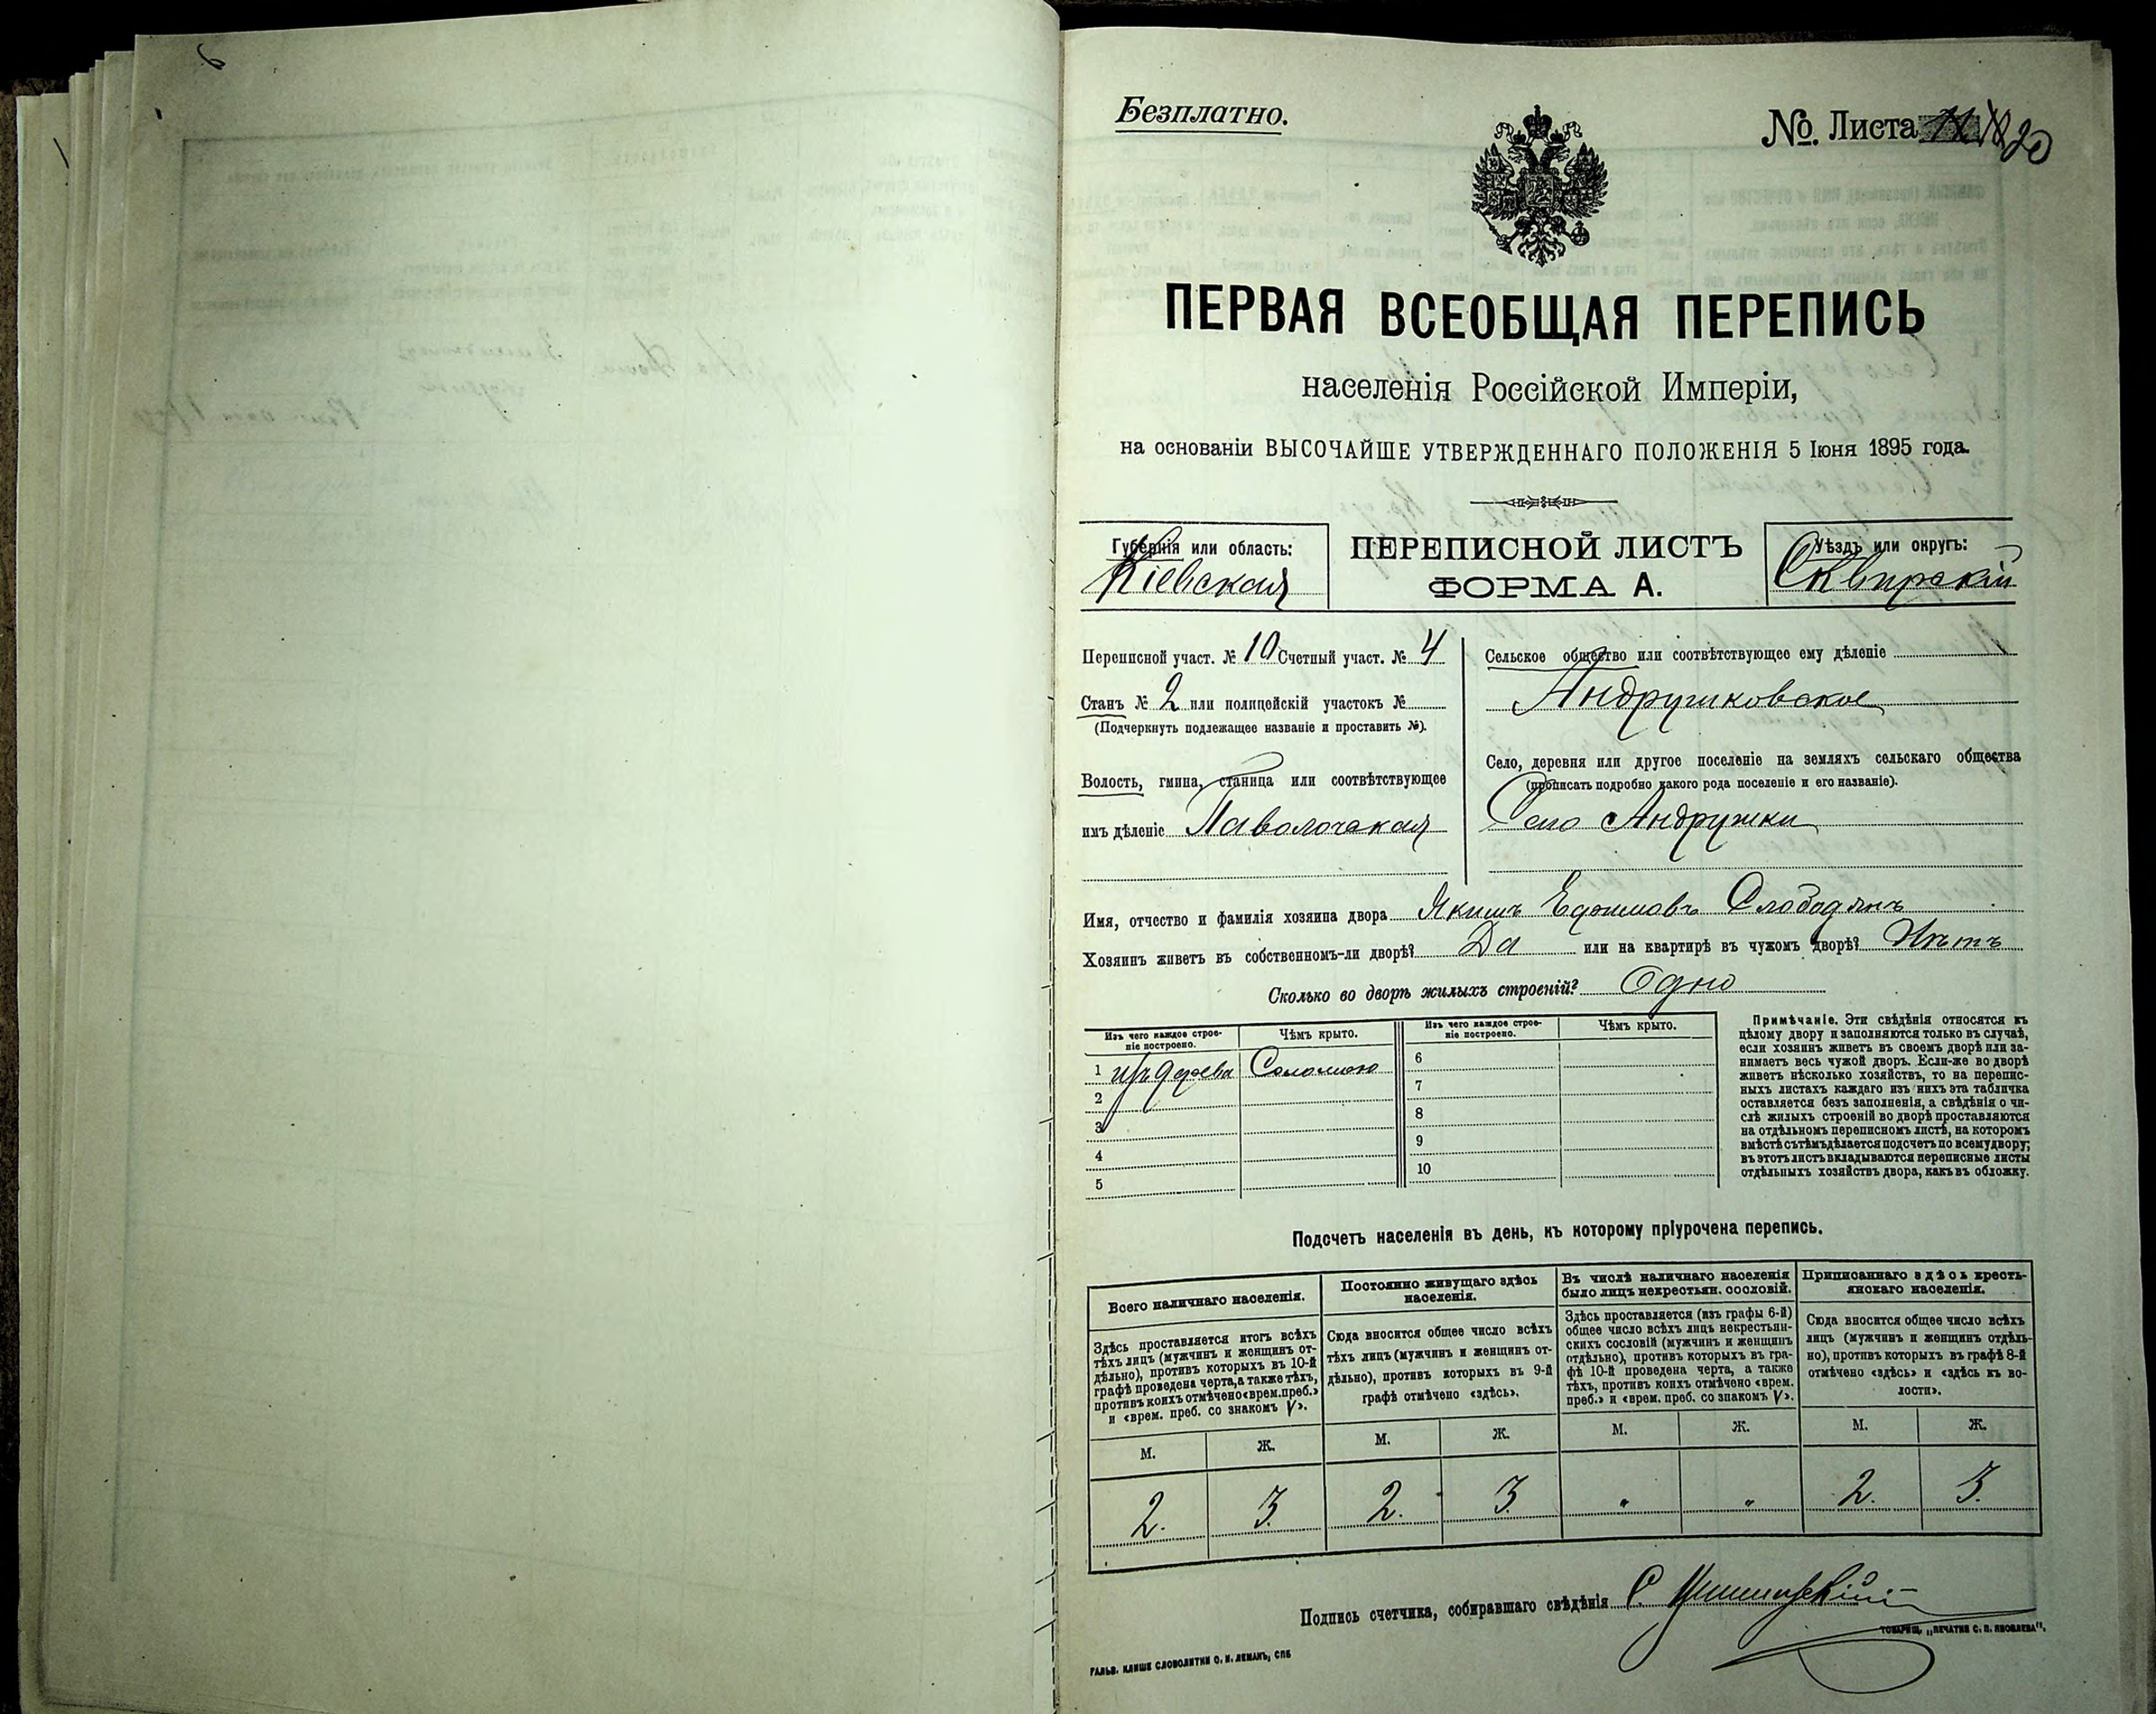 Безплатно.
№. Листа 20
ПЕРВАЯ ВСЕОБЩАЯ ПЕРЕПИСЬ
населенія Россійской Имперіи,
на основаніи ВЫСОЧАЙШЕ УТВЕРЖДЕННАГО ПОЛОЖЕНІЯ 5 Іюня 1895 года.
Губернія или область:
Кіевская
ПЕРЕПИСНОЙ ЛИСТЪ
ФОРМА А.
Уѣздъ или округъ:
Сквирскій
Переписной участ. № 10 Счетный участ. № 4
Станъ № 2 или полицейскій участокъ №
(Подчеркнуть подлежащее названіе и проставить №).
Волость, гмина, станица или соотвѣтствующее
имъ дѣленіе Паволочская
Сельское общество или соотвѣтствующее ему дѣленіе
Андрушковское
Село, деревня или другое поселеніе на земляхъ сельскаго общества
(прописать подробно какого рода поселеніе и его названіе).
Село Андрушки
Имя, отчество и фамилія хозяина двора Якимъ Ефимовъ Слободянъ
Хозяинъ живетъ въ собственномъ-ли дворѣ? Да или на квартирѣ въ чужомъ дворѣ? Нѣтъ
Сколько во дворѣ жилыхъ строеній? Одно
Изъ чего каждое строе-
ніе построено.
Чѣмъ крыто.
1 изъ дерева Соломою
2
3
4
5
Изъ чего каждое строе-
ніе построено.
Чѣмъ крыто.
6
7
8
9
10
Примѣчаніе. Эти свѣдѣнія относятся къ
цѣлому двору и заполняются только въ случаѣ,
если хозяинъ живетъ въ своемъ дворѣ или за-
нимаетъ весь чужой дворъ. Если-же во дворѣ
живетъ нѣсколько хозяйствъ, то на перепис-
ныхъ листахъ каждаго изъ нихъ эта табличка
оставляется безъ заполненія, а свѣдѣнія о чи-
слѣ жилыхъ строеній во дворѣ проставляются
на отдѣльномъ переписномъ листѣ, на которомъ
вмѣстѣ съ тѣмъ дѣлается подсчетъ по всему двору;
въ этотъ листъ вкладываются переписные листы
отдѣльныхъ хозяйствъ двора, какъ въ обложку.
Подсчетъ населенія въ день, къ которому пріурочена перепись.
Всего наличнаго населенія.
Здѣсь проставляется итогъ всѣхъ
тѣхъ лицъ (мужчинъ и женщинъ от-
дѣльно), противъ которыхъ въ 10-й
графѣ проведена черта, а также тѣхъ,
противъ коихъ отмѣчено «врем. преб.»
и «врем. преб. со знакомъ V».
М. Ж.
2. 3.
Постоянно живущаго здѣсь
населенія.
Сюда вносится общее число всѣхъ
тѣхъ лицъ (мужчинъ и женщинъ от-
дѣльно), противъ которыхъ въ 9-й
графѣ отмѣчено «здѣсь».
М. Ж.
2. 3.
Въ числѣ наличнаго населенія
было лицъ некрестьян. сословій.
Здѣсь проставляется (изъ графы 6-й)
общее число всѣхъ лицъ некрестьян-
скихъ сословій (мужчинъ и женщинъ
отдѣльно), противъ которыхъ въ гра-
фѣ 10-й проведена черта, а также
тѣхъ, противъ коихъ отмѣчено «врем.
преб.» и «врем. преб. со знакомъ V».
М. Ж.
" "
Приписаннаго здѣсь кресть-
янскаго населенія.
Сюда вносится общее число всѣхъ
лицъ (мужчинъ и женщинъ отдѣль-
но), противъ которыхъ въ графѣ 8-й
отмѣчено «здѣсь» и «здѣсь къ во-
лости».
М. Ж.
2. 3.
Подпись счетчика, собиравшаго свѣдѣнія С.
ТОВАРИЩ. „ПЕЧАТНЯ С. П. ЯКОВЛЕВА".
ГАЛЬВ. КЛИШЕ СЛОВОЛИТНИ О. И. ЛЕМАНЪ, СПБ